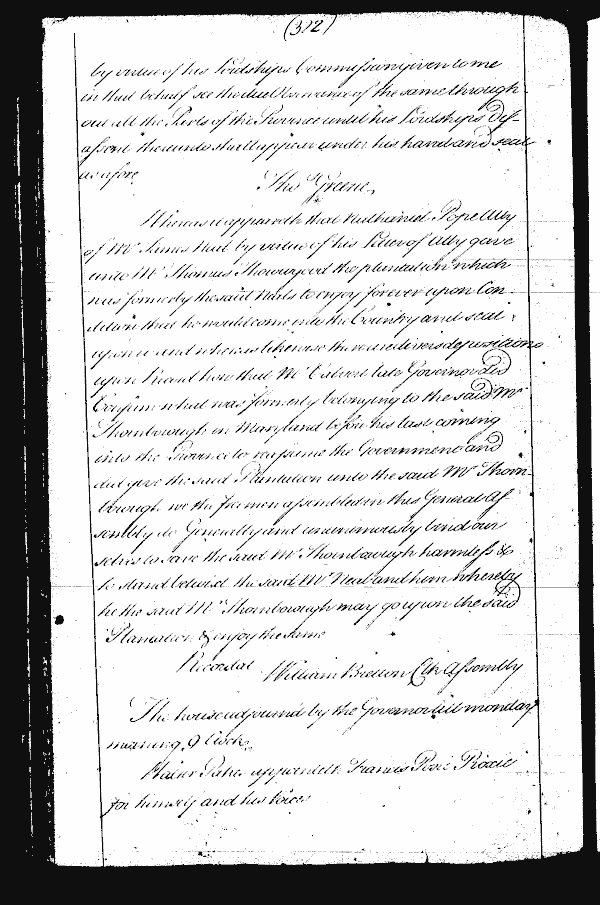 (312)
by virtue of his Lordships Commission given to me
in that behalf see the due Observance of the same through-
out all the Parts of the Province untill his Lordships Dis-
assent thereunto shall appear under his hand and seal
as afore
Tho Greene
Whereas it appeareth that Nathaniel Pope Atty
of Mr James Neal by virtue of his Letter of Atty gave
unto Mr Thomas Thornborough the plantation which
was formerly the said Neals to enjoy forever upon Con-
dition that he would come into the Country and seat
upon it and whereas likewise there are divers depositions
upon Record how that Mr Calvert late Governor did
Confirm what was formerly belonging to the said Mr
Thornborough in Maryland before his last coming
into the Province to reassume the Government and
did give the said Plantation unto the said Mr Thorn-
borough we the freemen assembled in this General As-
sembly do Generally and unanimously bind our
selves to save the said Mr Thornborough harmless &
to stand betwixt the said Mr Neal and him whereby
he the said Mr Thornborough may go upon the said
Plantation & enjoy the same
Recorded William Bretton Clk Assembly
The house adjourned by the Governor till monday
morning 9 Clock
Walter appointeth Francis
for himself and his Voices